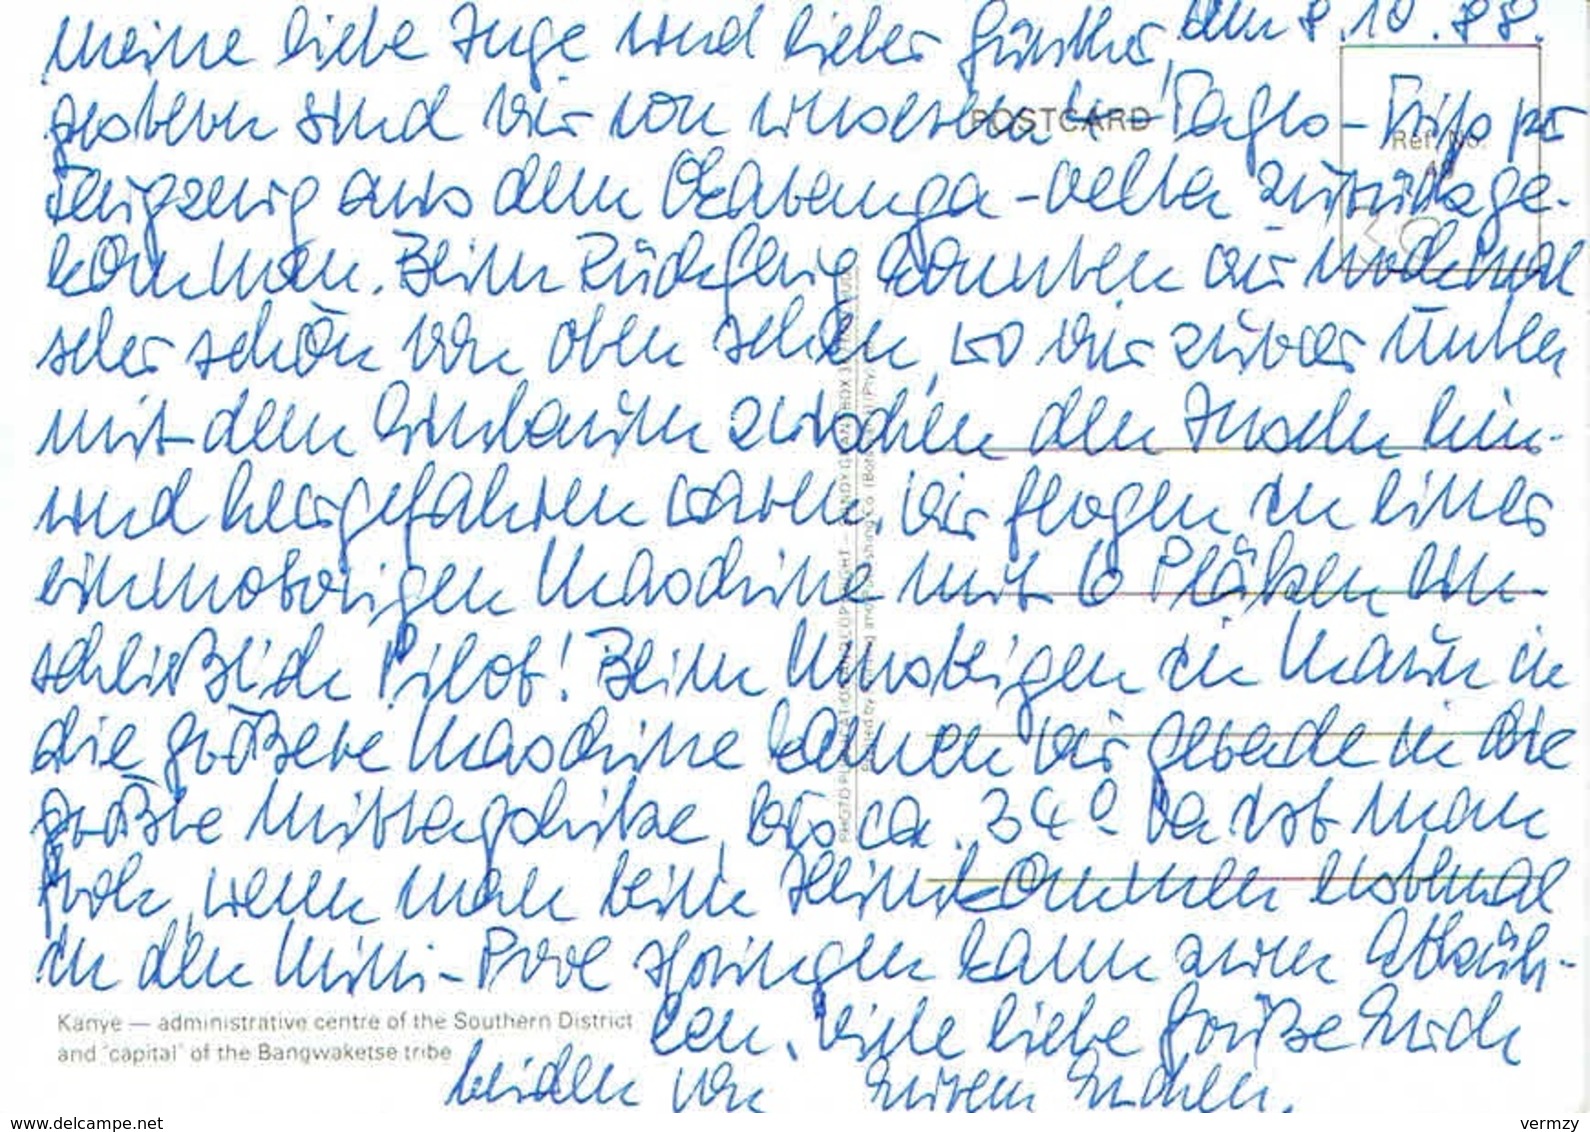 Meine liebe Inge und lieber Günther, den 8.10.88.
gestern sind wir von unserem Tages-Trip per
Flugzeug aus dem Okavango-Delta zurückge-
kommen. Beim Rückflug konnten wir nochmal
sehr schön von oben sehen, wo wir zuvor unten
mit dem Einbaum zwischen den Inseln hin-
und hergefahren waren, wir flogen in einer
einmotorigen Maschine mit 6 Plätzen ein-
schließlich Pilot! Beim Umsteigen in Maun in
die größere Maschine kamen wir gerade in die
größte Mittagshitze, bis ca. 34° Da ist man
froh, wenn man beim Heimkommen erstmal
in den Mini-Pool springen kann zum Abküh-
len. Viele liebe Grüße Euch
beiden von Eurem
POSTCARD
Ref. No.
Kanye — administrative centre of the Southern District
and "capital" of the Bangwaketse tribe
www.delcampe.net
vermzy